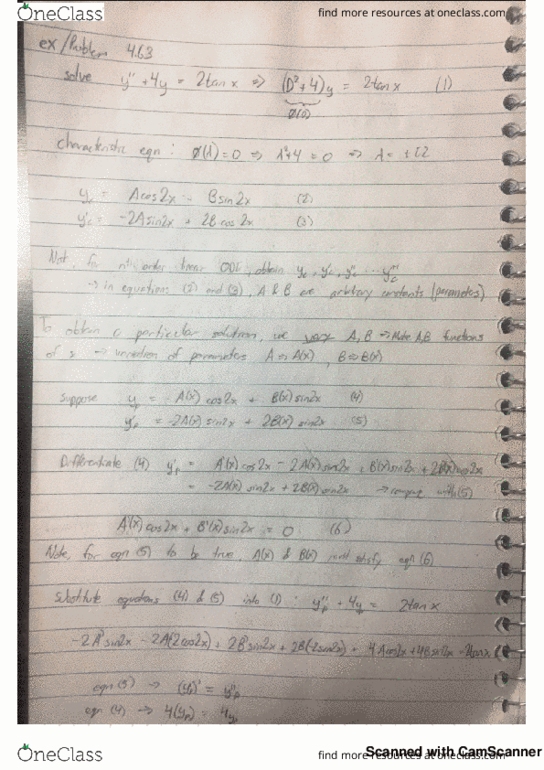 OneClass
find more resources at oneclass.com
ex/Problem 4.63
solve y'' + 4y = 2tan x => (D²+4)y = 2tan x (1)
Ø(D)
characteristic eqn : Ø(λ)=0 => λ²+4 = 0 => λ = ± i2
yc = Acos2x - Bsin2x (2)
y'c = -2Asin2x + 2Bcos2x (3)
Not, for nth order linear ODE, obtain yc, y'c, y''c ...
-> in equations (2) and (3), A & B are arbitrary constants (parameters)
To obtain a particular solution, we vary A, B => Make A,B functions
of x => variation of parameters A => A(x), B => B(x)
suppose yp = A(x) cos2x + B(x) sin2x (4)
y'p = -2A(x) sin2x + 2B(x) sin2x (5)
Differentiate (4) y'p = A'(x) cos2x - 2A(x) sin2x + B'(x) sin2x + 2B(x) cos2x
= -2A(x) sin2x + 2B(x) sin2x -> compare with (5)
A'(x) cos2x + B'(x) sin2x = 0 (6)
Note, for eqn (5) to be true, A(x) & B(x) must satisfy eqn (6)
Substitute equations (4) & (5) into (1) : y''p + 4yp = 2tan x
-2A'sin2x - 2A(2cos2x) + 2B'sin2x + 2B(2sin2x) + 4Acos2x + 4Bsin2x = 2tanx
eqn (5) -> (y'p)' = y''p
eqn (4) -> 4(yp) = 4yp
OneClass
find more resources at oneclass.com
Scanned with CamScanner